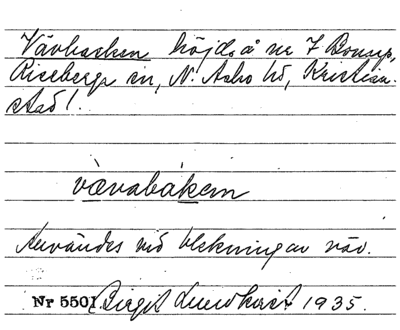 Vävbacken höjd å nr 7 Bonarp,
Riseberga sn, N. Åsbo hd, Kristian-
stads l.
vævabákem
Användes vid blekning av väv.
Nr 5501. Birgit Lundkvist 1935.